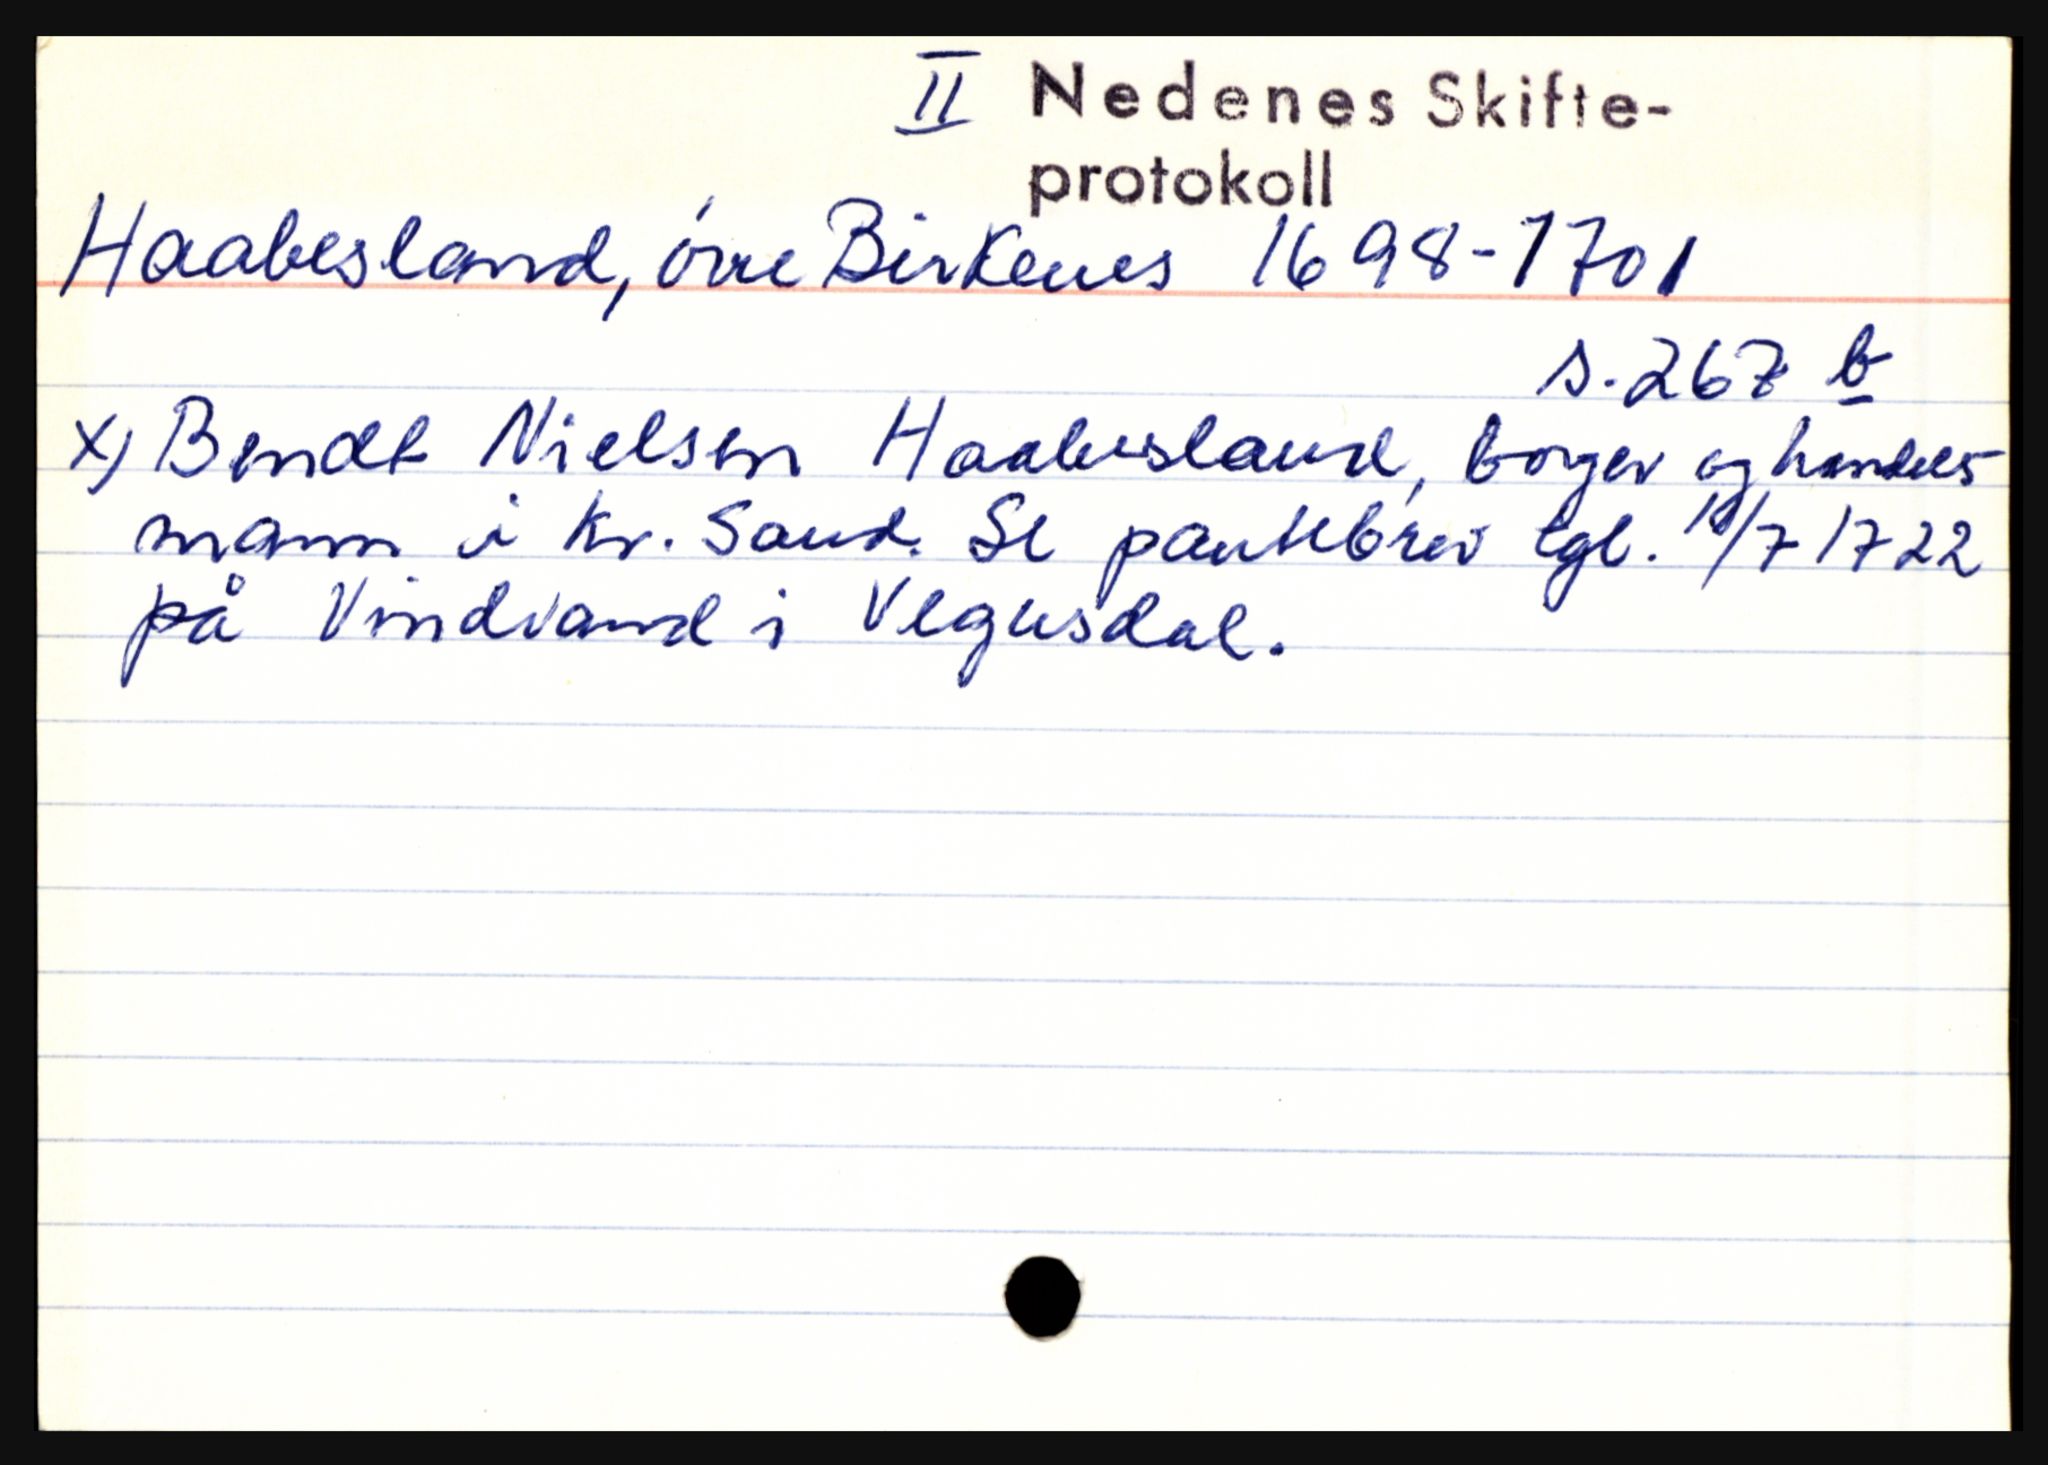 II Nedenes Skifte-
protokoll
Haabesland, övre Birkenes 1698-1701
s. 267 b
x) Bendt Nielsen Haabesland, borger og handels
mann i Kr. Sand. Se pantebrev tgl. /7 1722
på Vindvand i Vegusdal.